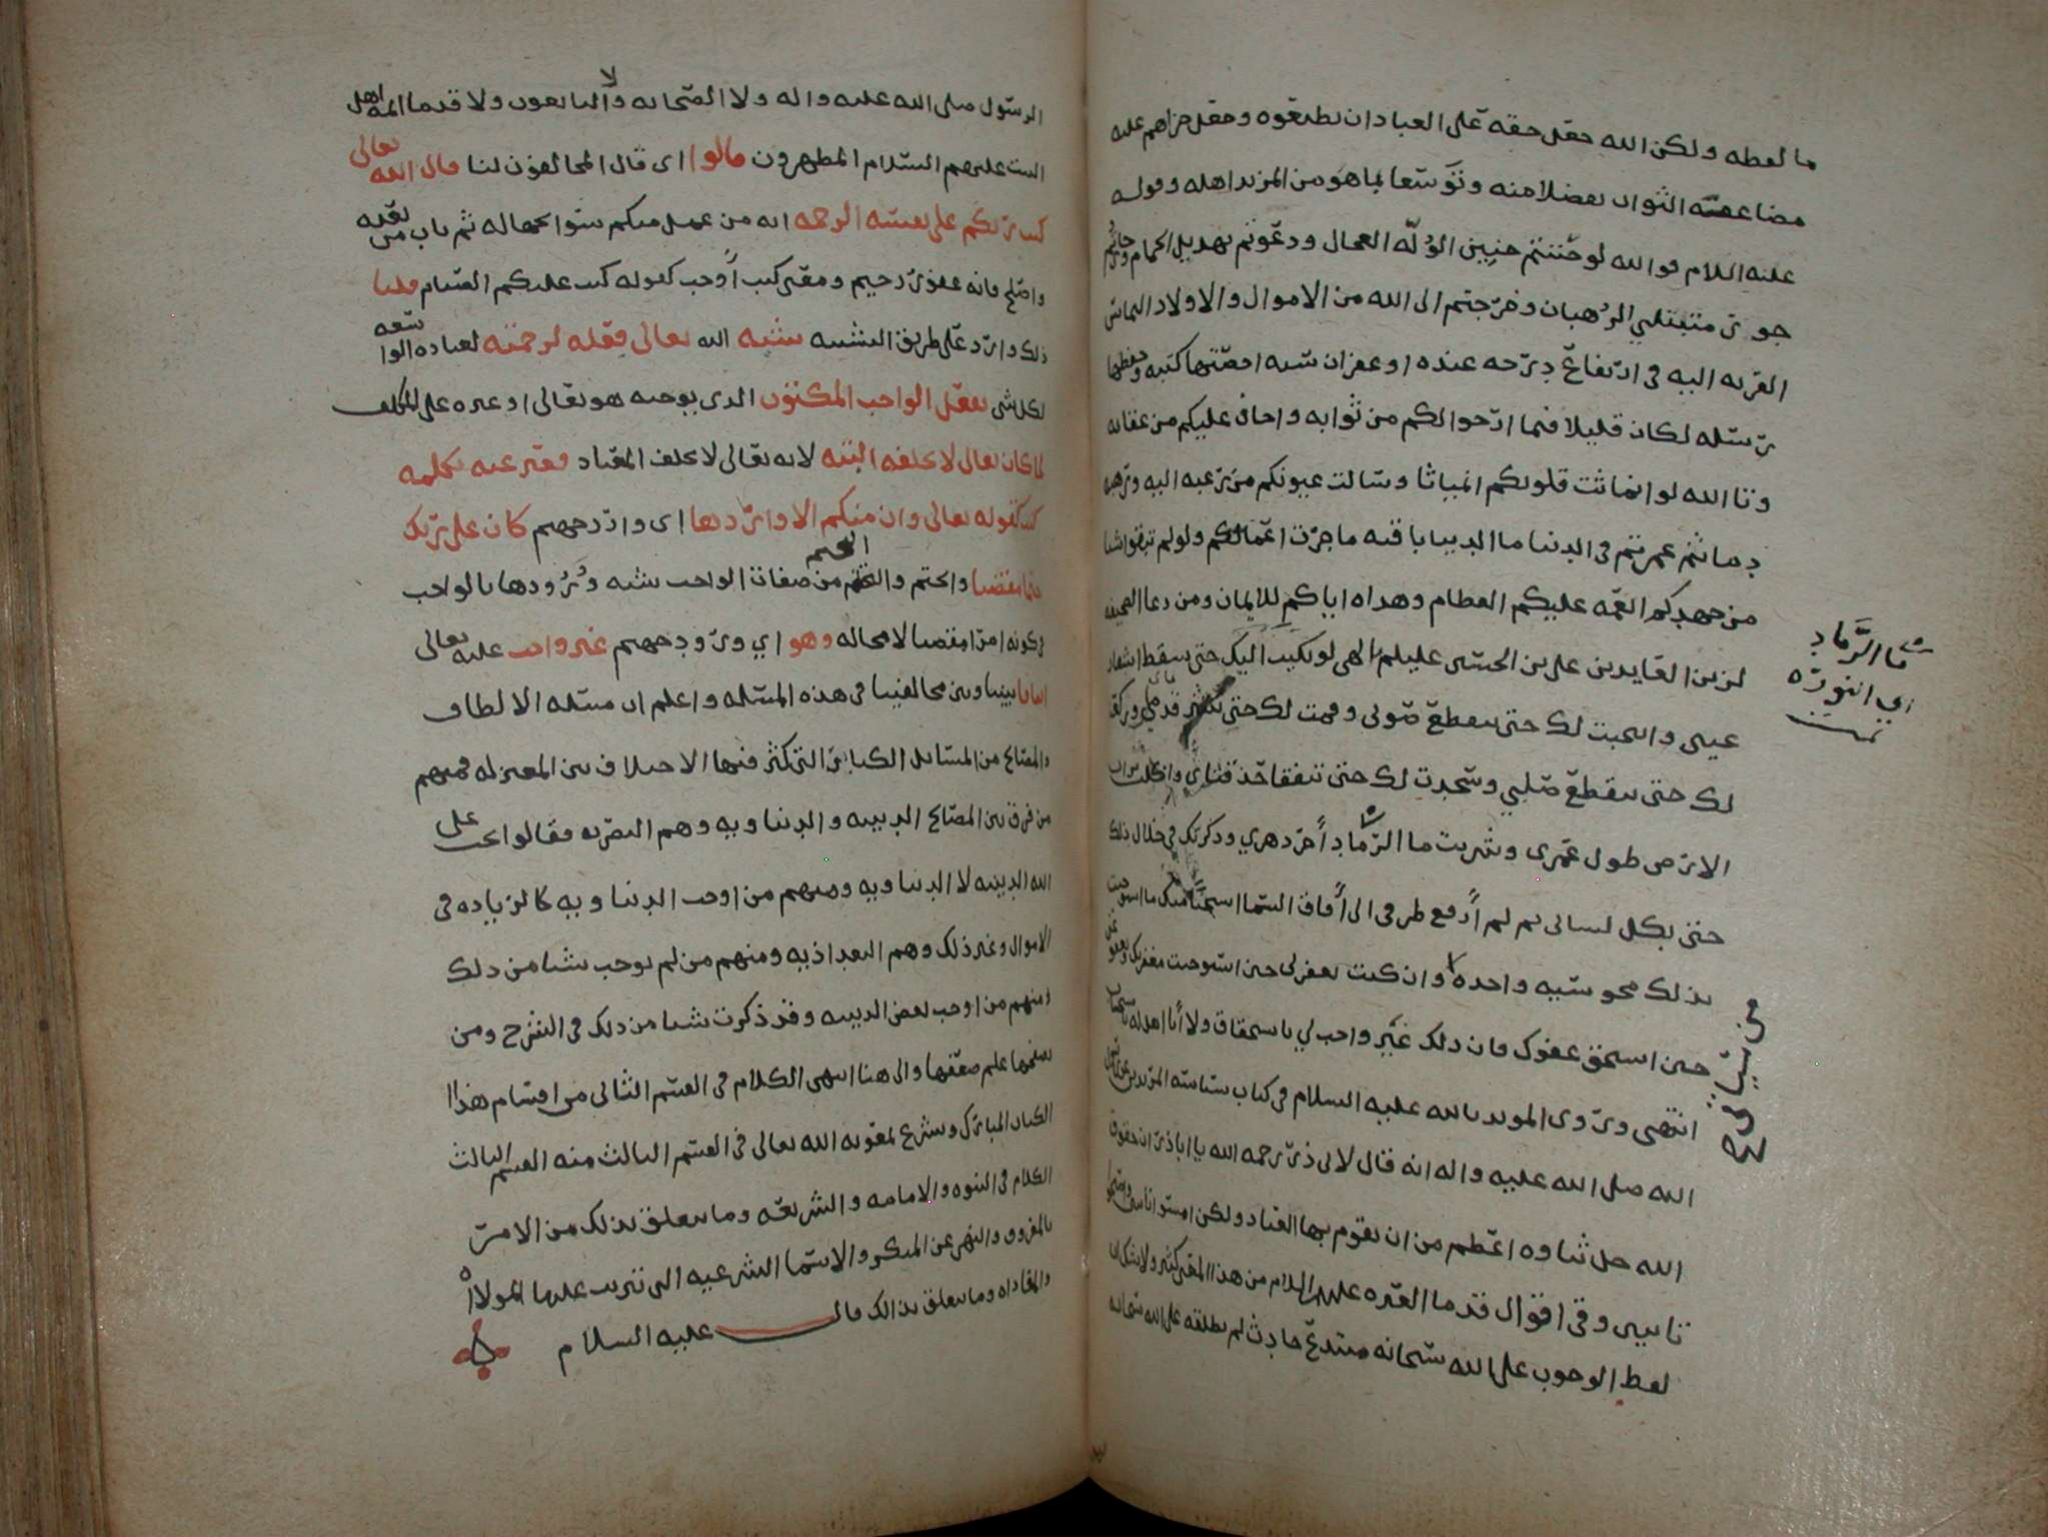 ما لفظه ولكن الله جعل حقه على العباد ان يطيعوه وجعل جزاهم عليه
مضاعفة الثواب تفضلا منه وتوسعا بما هو من المزيد اهله وقوله
عليه السلام فوالله لو حننتم حنين الوله العجال ودعوتم بهديل الحمام وجأرتم
جوار متبتلي الرهبان وخرجتم الى الله من الاموال والاولاد التماس
القربه اليه في ارتفاع درجه عنده او غفران سيه احصتها كتبه وحفظها
رسله لكان قليلا فيما ارجوا لكم من ثوابه واخاف عليكم من عقابه
وتا الله لو انماثت قلوبكم انمياثا وسالت عيونكم من رغبه اليه ورهبه
دما ثم عمرتم في الدنيا ما الدنيا باقيه ما جزت اعمالكم ولو لم تبقوا شيا
من جهدكم انعمه عليكم العظام وهداه اياكم للايمان ومن دعا الصحيفه
لزين العابدين علي بن الحسين عليلم يا الهي لو بكيت اليك حتى يسقط اشفار
عيني وانتحبت لك حتى ينقطع صوتي وقمت لك حتى تنتشر قدماي وركعت
لك حتى ينقطع صلبي وسجدت لك حتى تتفقا حدقتاي واكلت تراب
الارض طول عمري وشربت ما الرماد آخر دهري وذكرتك في خلال ذلك
حتى يكل لساني ثم لم أرفع طرفي الى آفاق السما استحيا منك ما استوجبت
بذلك محو سييه واحده وان كنت تغفر لي حين استوجبت مغفرتك وتعفو عني
حين استحق عفوك فان ذلك غير واجب لي باستحقاق ولا أنا اهل له باستيجاب
انتهى وروى المويد بالله عليه السلام في كتاب سياسه المريدين عن رسول
الله صلى الله عليه واله انه قال لابي ذر رحمه الله يا ابا ذر ان حقوق
الله جل ثناوه اعظم من ان يقوم بها العباد ولكن امسوا تايبين واصبحوا
تايبين وفي اقوال قدما العتره عليهم السلام من هذا المعنى كثير ولا شك ان
لفظ الوجوب على الله سبحانه مبتدع حادث لم يطلقه على الله سبحانه
ما الرماد
اي النوره
تمت
الرسول صلى الله عليه واله ولا الصحابه ولا التابعون ولا قدما ائمه اهل
البيت عليهم السلام المطهرون قالوا اي قال المخالفون لنا قال الله تعالى
كتب ربكم على نفسه الرحمه انه من عمل منكم سوا بجهاله ثم تاب من بعده
واصلح فانه غفور رحيم ومعنى كتب أوجب كقوله كتب عليكم الصيام قلنا
ذلك وارد على طريق التشبيه شبه الله تعالى فعله لرحمته لعباده الواسعه
لكل شي بفعل الواجب المكتوب الذي يوجبه هو تعالى او غيره على المكلف
لما كان تعالى لا يخلفه البته لانه تعالى لا يخلف الميعاد فعبر عنه بكلمه
كتب كقوله تعالى وان منكم الا واردها اي وارد جهنم كان على ربك
حتما مقضيا والحتم والتحتم من صفات الواجب شبه ورودها بالواجب
لكونه امرا مقضيا لا محاله وهو اي ورود جهنم غير واجب عليه تعالى
اتفاقا بيننا وبين مخالفينا في هذه المسئله واعلم ان مسئله الالطاف
والمصالح من المسائل الكبائر التي كثر فيها الاختلاف بين المعتزله فمنهم
من فرق بين المصالح الدينيه والدنياويه وهم البصريه فقالوا تجب على
الله الدينيه لا الدنياويه ومنهم من اوجب الدنياويه كالزياده في
الاموال وغير ذلك وهم البغداذيه ومنهم من لم يوجب شيا من ذلك
ومنهم من اوجب بعض الدينيه وقد ذكرت شيا من ذلك في الشرح ومن
تصفحها علم ضعفها والى هنا انتهى الكلام في القسم الثاني من اقسام هذا
الكتاب المبارك ونشرع بمعونه الله تعالى في القسم الثالث منه القسم الثالث
الكلام في النبوه والامامه والشريعه وما يتعلق بذلك من الامر
بالمعروف والنهي عن المنكر والاسما الشرعيه التي تترتب عليها الموالاه
والمعاداه وما يتعلق بذالك قال عليه السلام